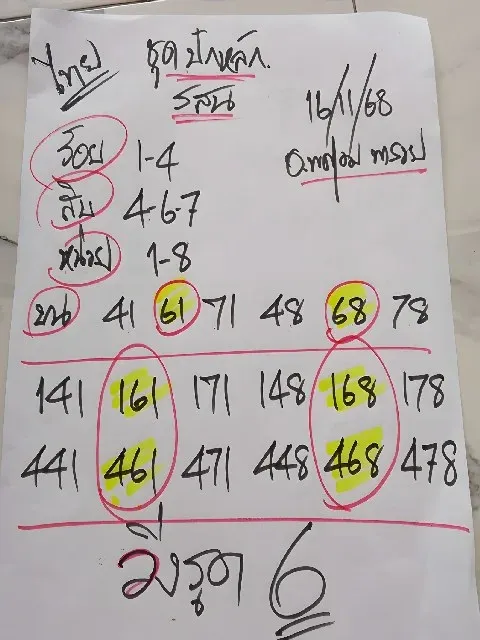 ไทย ชุด ปักหลัก.
16/11/68
ร้อย 1-4
สิบ 4-6-7
หน่วย 1-8
บน 41 61 71 48 68 78
141 161 171 148 168 178
441 461 471 448 468 478
6